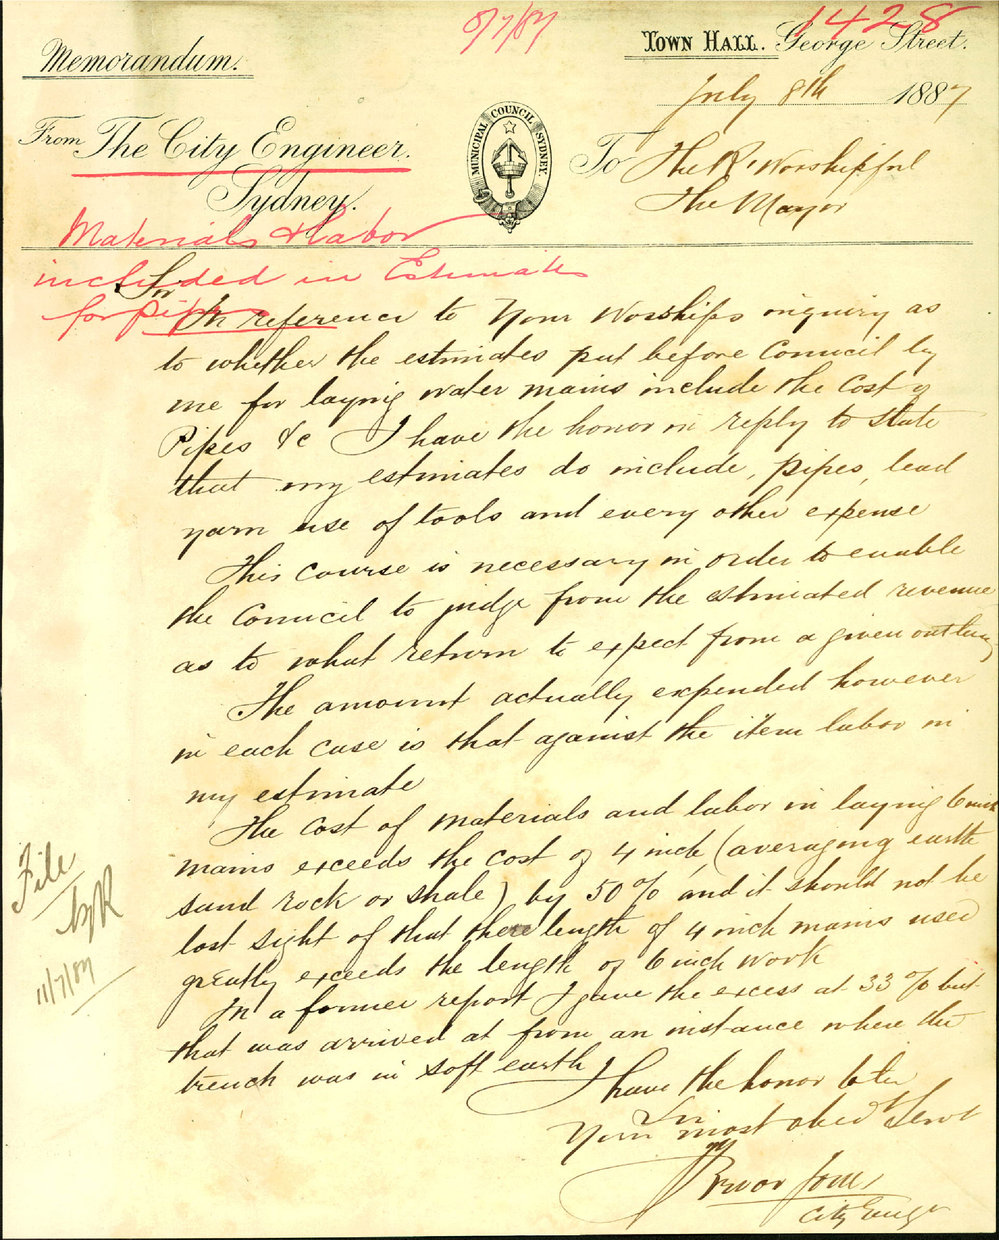 8/7/87
1428
Memorandum.
TOWN HALL. George Street.
July 8th 1887
From The City Engineer.
Sydney.
MUNICIPAL COUNCIL SYDNEY.
To The Rt. Worshipful
The Mayor
Materials & Labor
included in Estimates
for pipes
Sir
In reference to Your Worships inquiry as
to whether the estimates put before Council by
me for laying water mains include the Cost of
Pipes &c I have the honor in reply to state
that my estimates do include, pipes, lead
yarn use of tools and every other expense
This course is necessary in order to enable
the Council to judge from the estimated revenue
as to what return to expect from a given outlay
The amount actually expended however
in each case is that against the item labor in
my estimate
The Cost of materials and labor in laying 6 inch
mains exceeds the cost of 4 inch (averaging earth
sand rock or shale) by 50 % and it should not be
lost sight of that the length of 4 inch mains used
greatly exceeds the length of 6 inch work
In a former report I gave the excess at 33 % but
that was arrived at from an instance where the
trench was in soft earth
I have the honor to be
Sir
Your most obed Servt
Trevor Jones
City Engr
File
11/7/87